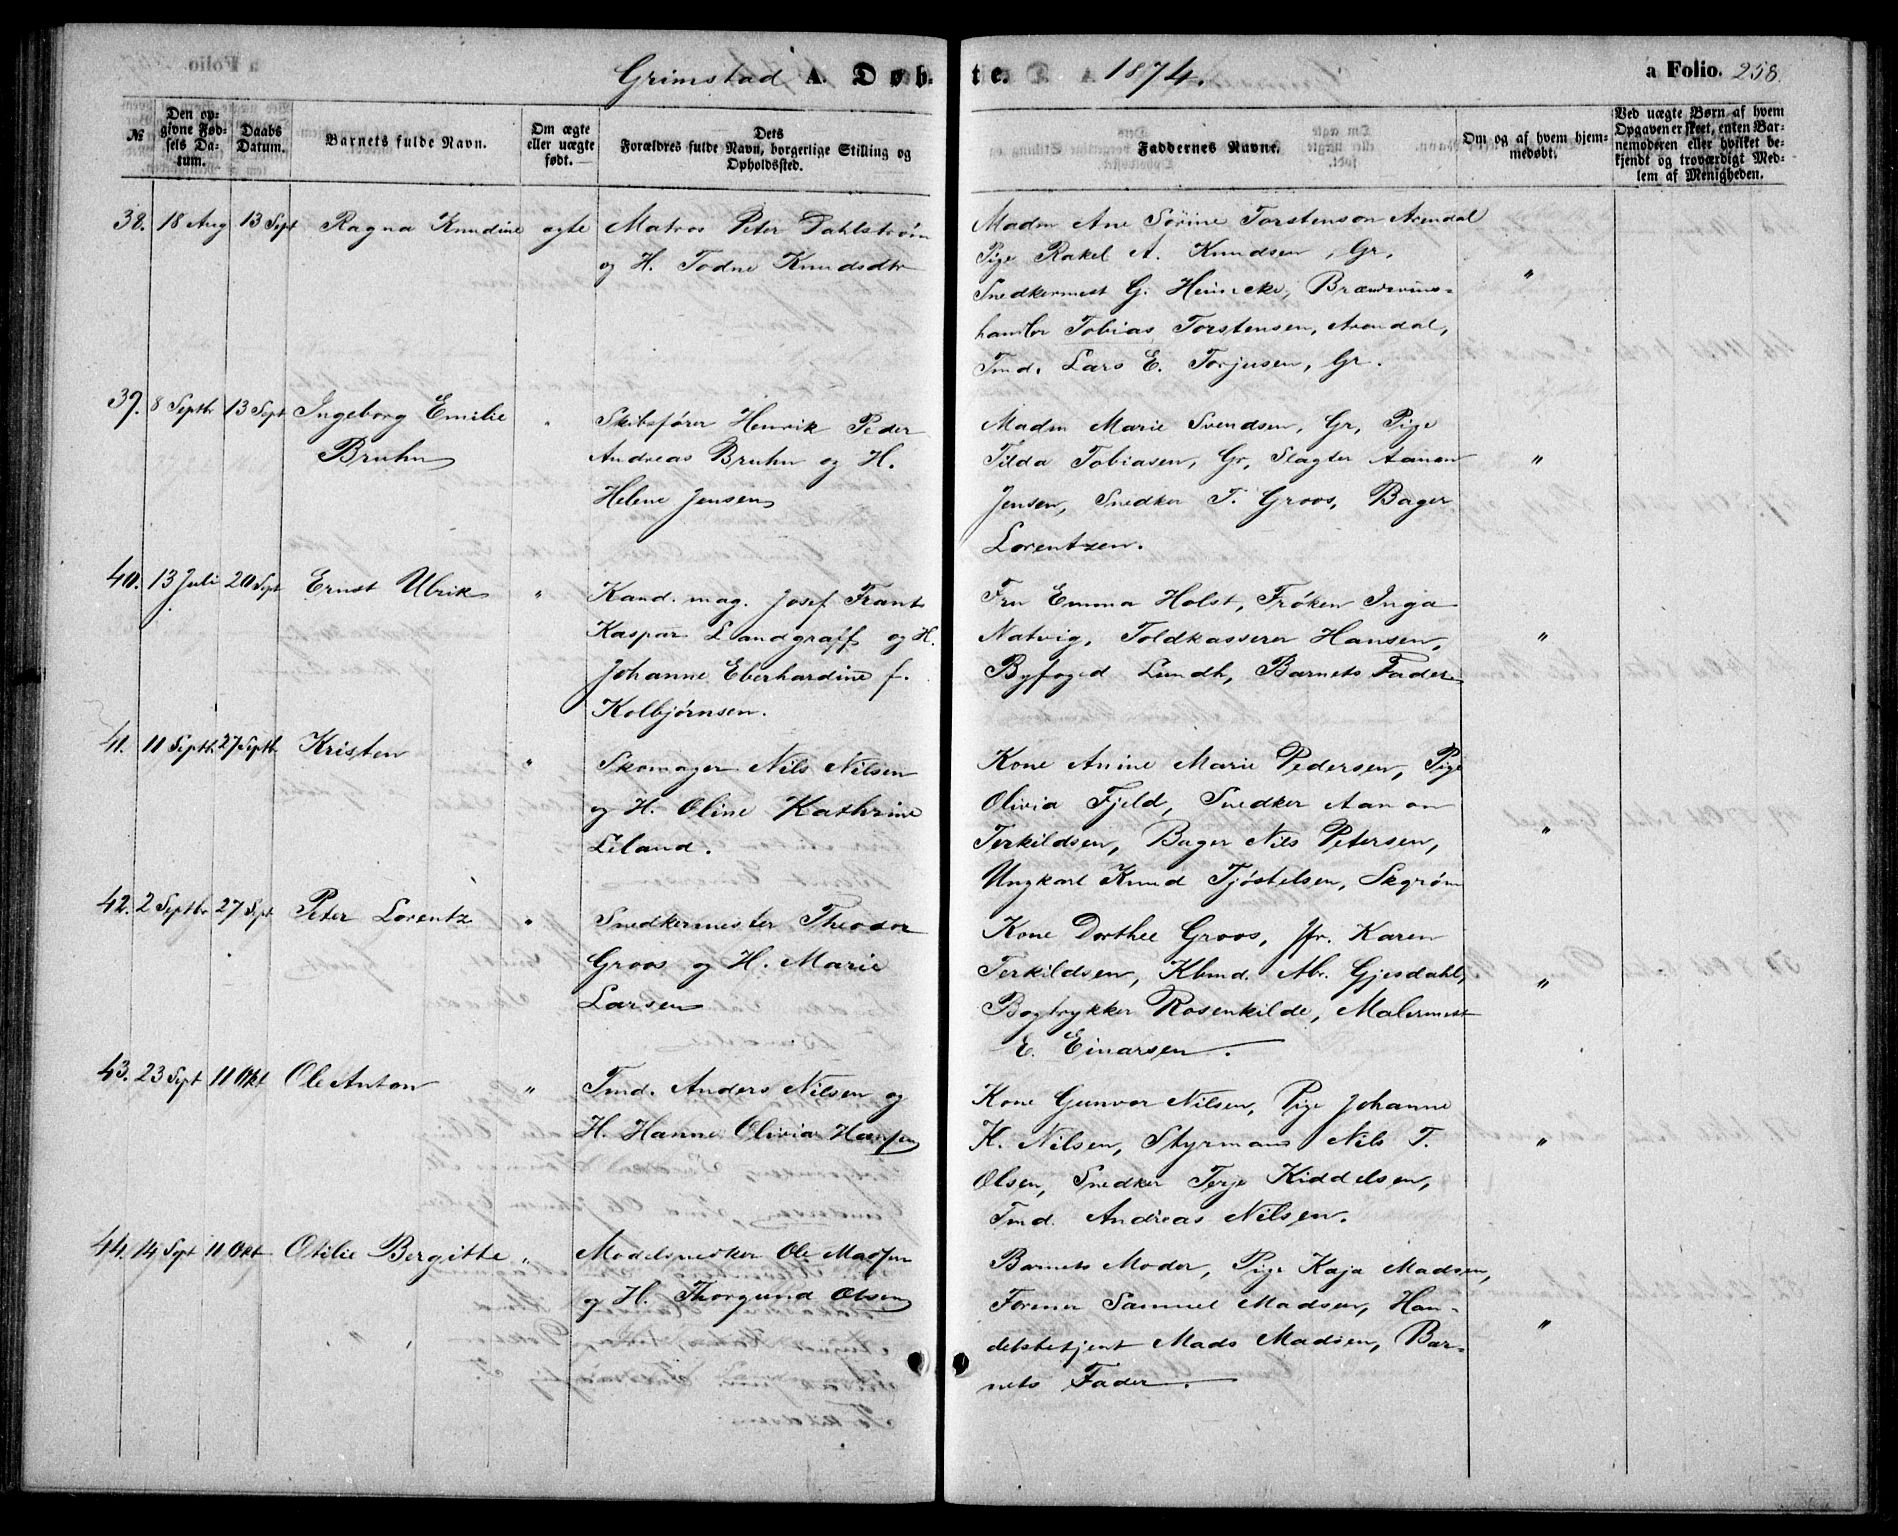 Grimstad A. Døbte. 1874. a Folio. 258.
№
Den opgivne Fødsels Datum.
Daabs Datum.
Barnets fulde Navn.
Om ægte eller uægte født.
Dets Forældres fulde Navn, borgerlige Stilling og Opholdssted.
Faddernes Navne.
Om og af hvem hjemmedøbt.
Ved uægte Børn af hvem Opgaven er skeet, enten Barnemoderen eller hvilket bekjendt og troværdigt Medlem af Menigheden.
38. 18 Aug 13 Sept Ragna Knudine ægte Matros Peter Dahlstrøm
og H. Todne Knudsdtr
Madm Ane Sørine Torstenson Arendal
Pige Rakel A. Knudsen, Gr,
Snedkermest G. Heinecke, Brændevins-
handlr Tobias Torstensen, Arendal,
Tmd. Lars E. Torjusen, Gr. "
39. 8 Septbr 13 Sept Ingeborg Emilie
Bruhn "
Skibsfører Henrik Peder
Andreas Bruhn og H.
Helene Jensen
Madm Marie Svendsen, Gr, Pige
Tilda Tobiasen, Gr, Slagter Aanon
Jensen, Snedker T. Groos, Bager
Lorentzen. "
40. 13 Juli 20 Sept Ernst Ulrik "
Kand. mag. Josef Frants
Kaspar Landgraff og H.
Johanne Eberhardine f.
Kolbjørnsen.
Fru Emma Holst, Frøken Inga
Natvig, Toldkasserer Hansen,
Byfoged Lundh, Barnets Fader "
41. 11 Septbr 27 Septb Kristen "
Skomager Nils Nilsen
og H. Oline Kathrine
Leland.
Kone Anine Marie Pedersen, Pige
Olivia Fjeld, Snedker Aanon
Terkildsen, Bager Nils Petersen,
Ungkarl Knud Tjøstelsen, Skgrøm "
42. 2 Septbr 27 Sept Peter Lorentz "
Snedkermester Theodor
Groos og H. Marie
Larsen
Kone Dorthee Groos, Jfr. Karen
Terkildsen, Kbmd. Abr. Gjesdahl,
Bogtrykker Rosenkilde, Malermest
E. Einarsen. "
43. 23 Sept 11 Okt Ole Anton "
Tmd. Anders Nilsen og
H. Hanne Olivia Hansen
Kone Gunvor Nilsen, Pige Johanne
K. Nilsen, Styrmand Nils T.
Olsen, Snedker Terje Kiddelsen,
Tmd. Andreas Nilsen. "
44. 14 Sept 11 Okt Otilie Bergitte "
Modelsnedker Ole Madsen
og H. Thorgund Olsen
Barnets Moder, Pige Kaja Madsen,
Former Samuel Madsen, Han-
delsbetjent Mads Madsen, Bar-
nets Fader. "